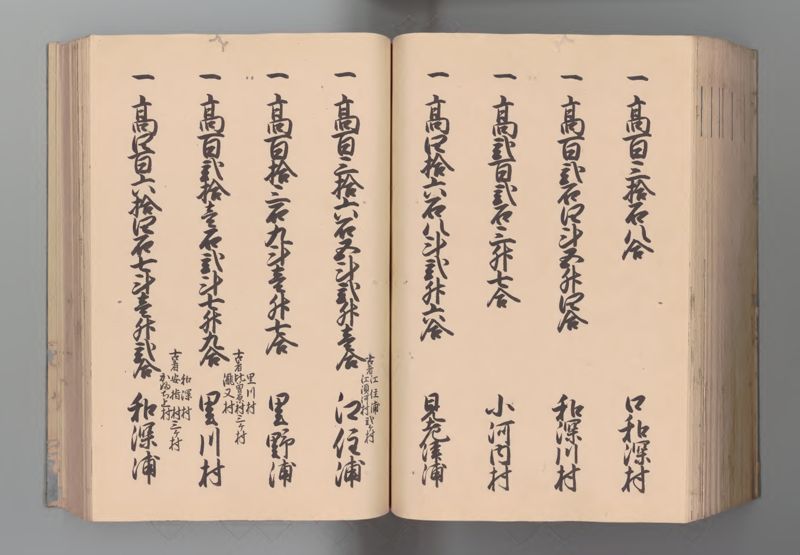 一 高百三拾石八合 口和深村
一 高百弐石四斗五升四合 和深川村
一 高弐百弐石三升七合 小河内村
一 高四拾六石八斗弐升六合 見老津浦
一 高百三拾六石五斗弐升壱合 江住浦
古者江住浦
江須川村弐ケ村
一 高百拾三石九斗壱升七合 里野浦
一 高百弐拾壱石弐斗七升九合 里川村
里川村
古者 村三ケ村
瀧又村
一 高四百六拾四石七斗壱升弐合 和深浦
和深村
古者安指村三ケ村